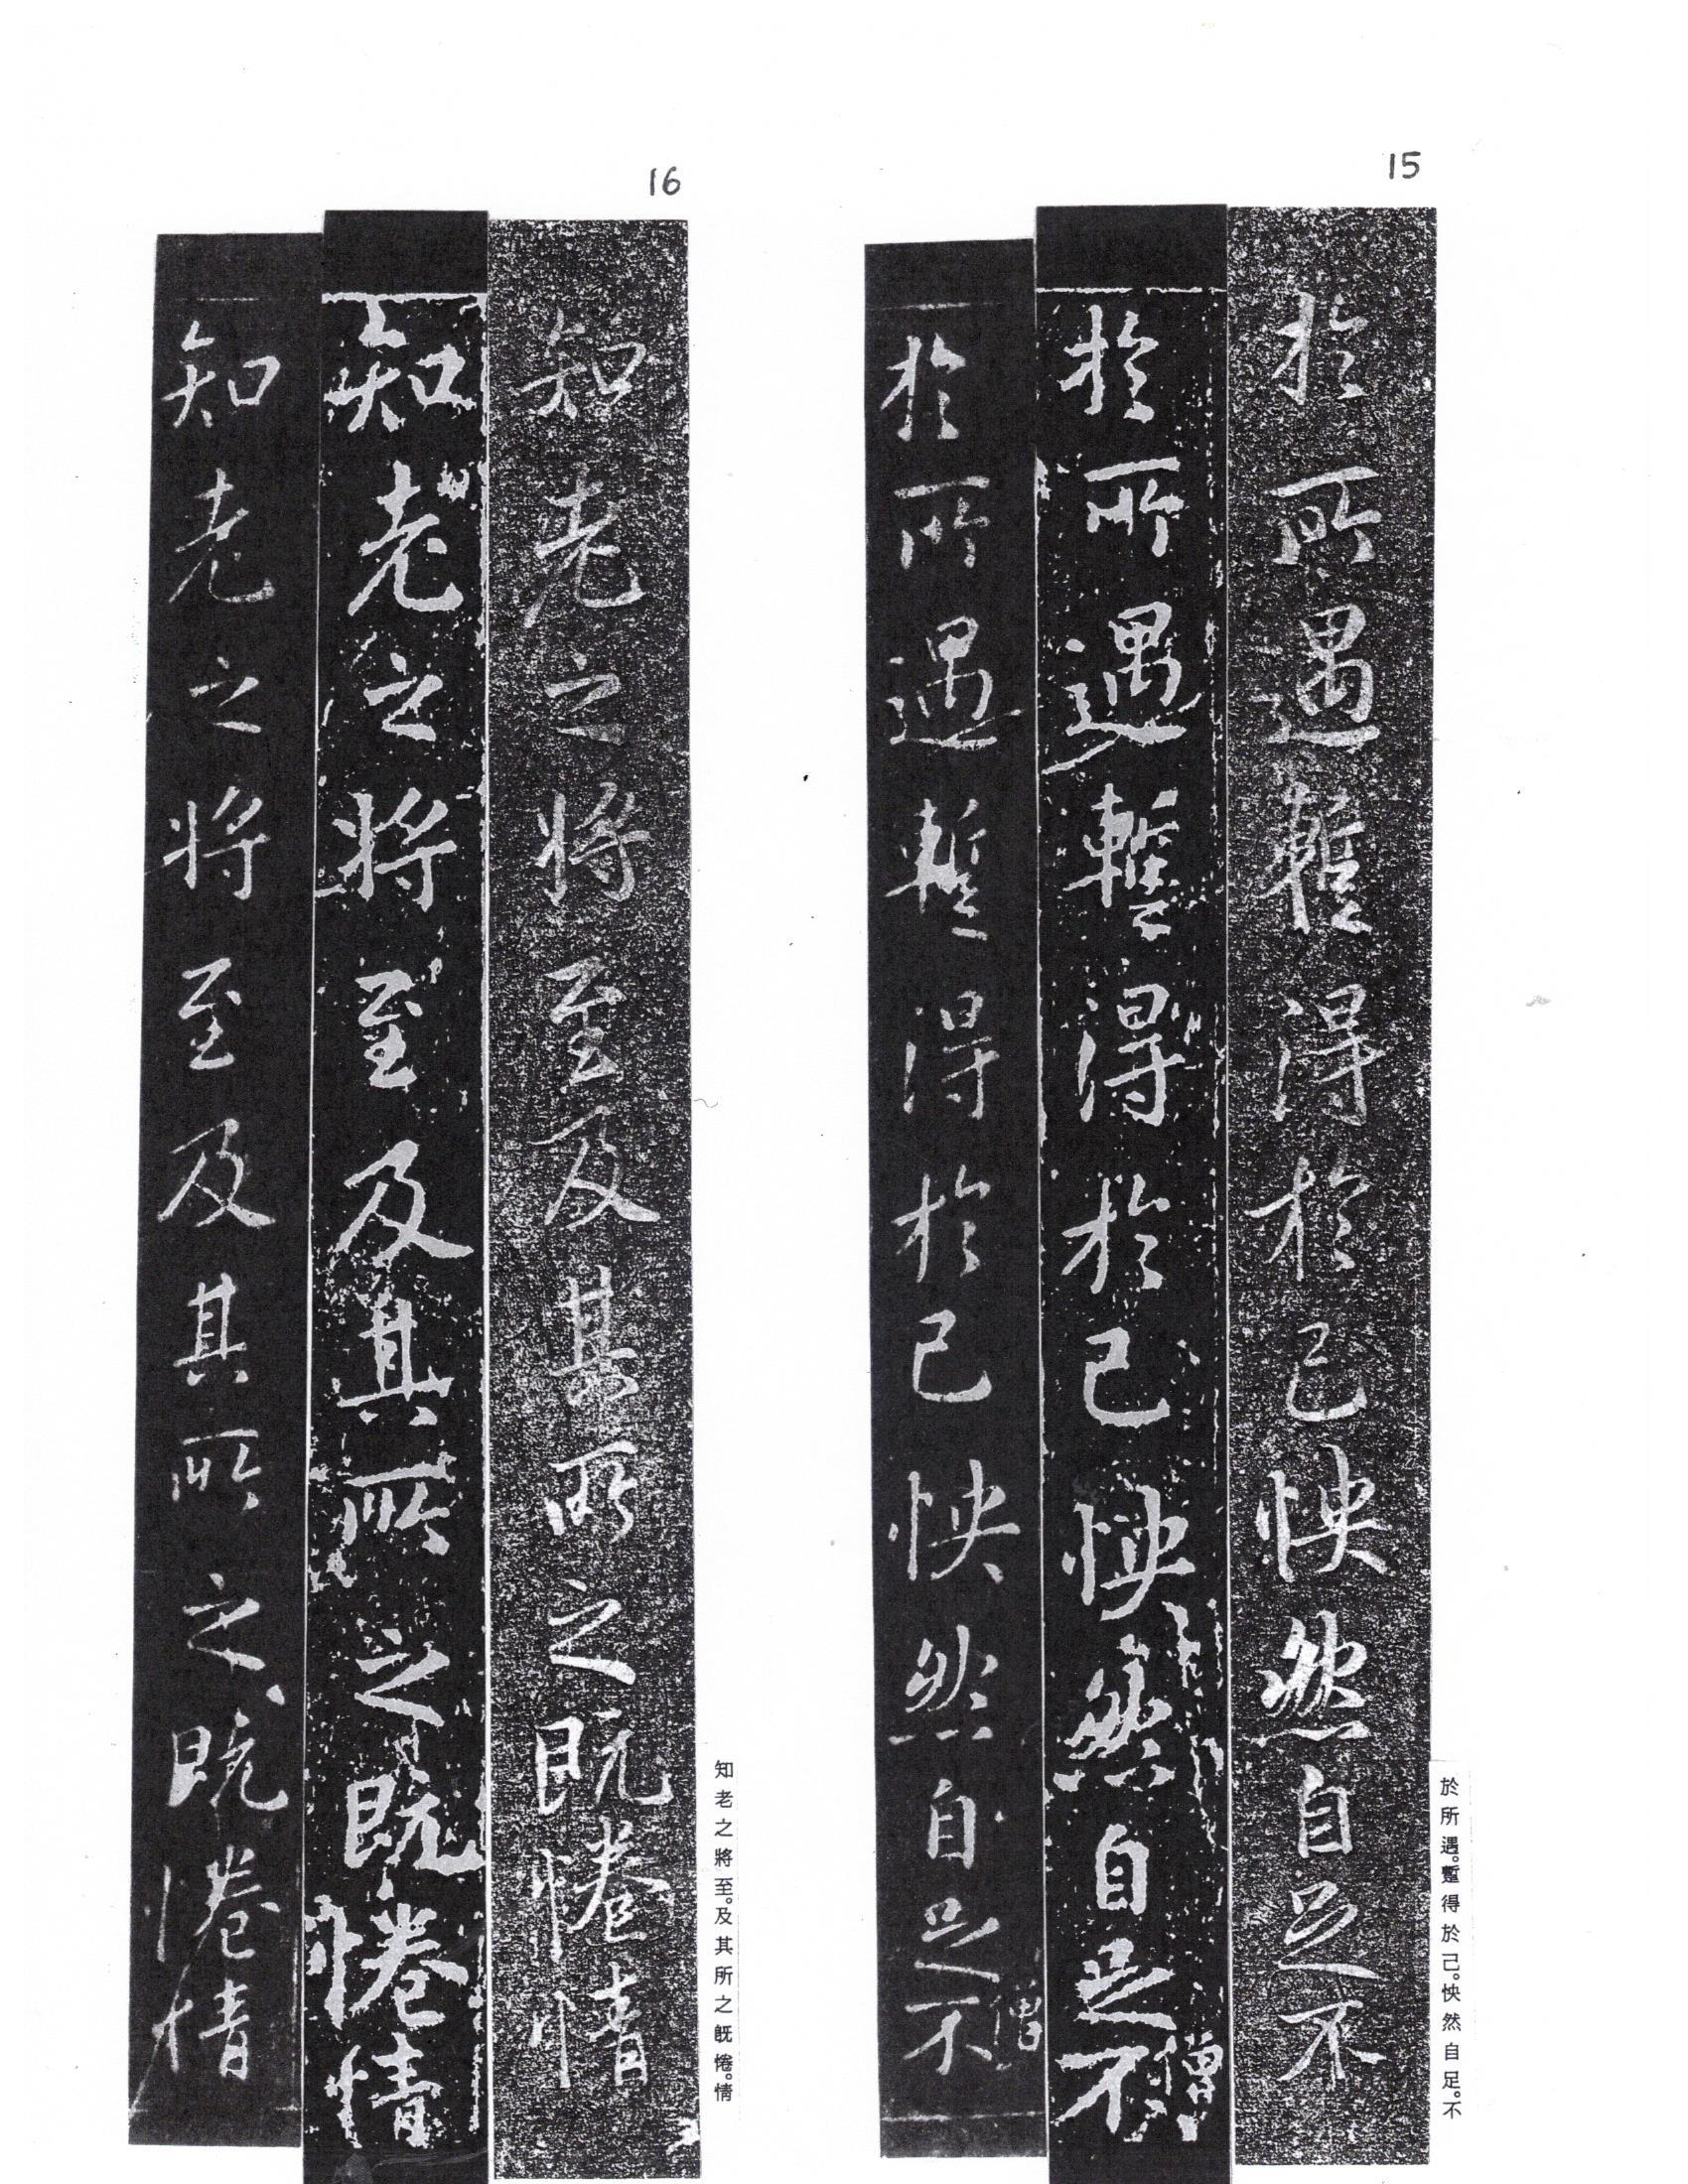 15
於所遇暫得於己怏然自足不
於所遇暫得於己怏然自足不
僧
於所遇暫得於己怏然自足不
僧
於所遇。蹔得於己。怏然自足。不
16
知老之將至及其所之既惓情
知老之將至及其所之既惓情
知老之將至及其所之既惓情
知老之將至。及其所之既惓。情